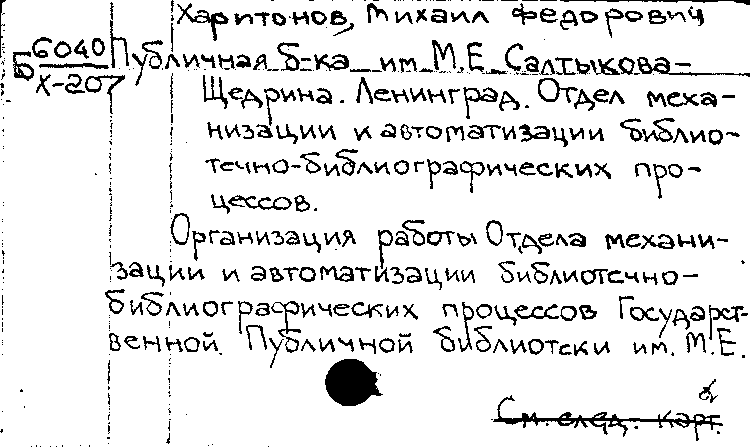 Харитонов, Михаил Федорович
Б 6040
Х-207
Публичная б-ка им. М.Е. Салтыкова-
Щедрина. Ленинград. Отдел меха-
низации и автоматизации библио-
течно-библиографических про-
цессов.
Организация работы Отдела механи-
зации и автоматизации библиотечно-
библиографических процессов Государст-
венной Публичной библиотеки им. М.Е.
См. след. карт.